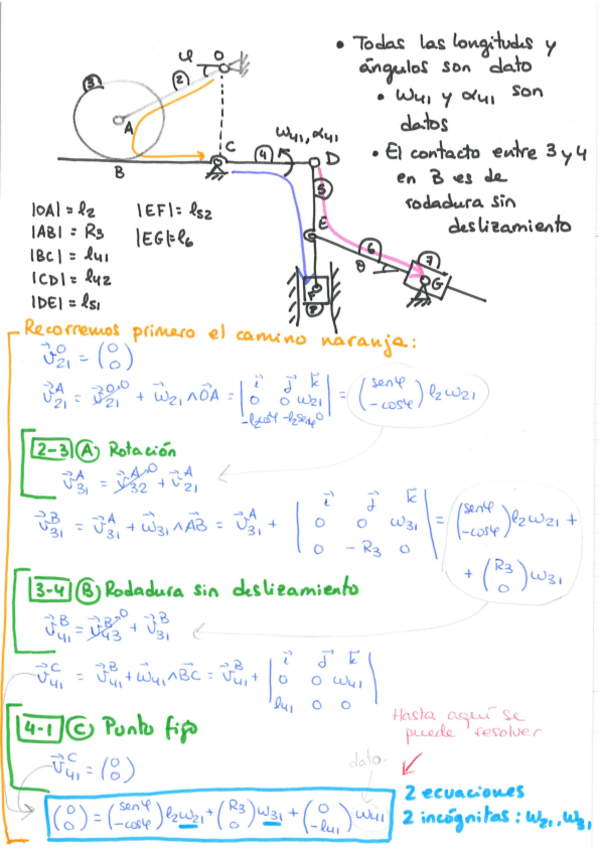 • Todas las longitudes y
ángulos son dato
• ω41 y α41 son
datos
• El contacto entre 3 y 4
en B es de
rodadura sin
deslizamiento
φ O
3
2
A
B
C
4
ω41, α41
D
5
E
6
θ
7
G
F
8
|OA| = l2 |EF| = l52
|AB| = R3 |EG| = l6
|BC| = l41
|CD| = l42
|DE| = l51
Recorremos primero el camino naranja:
v⃗21^O = (0 0)
v⃗21^A = v⃗21^O,0 + ω⃗21 ∧ OA = | i⃗ j⃗ k⃗ ; 0 0 ω21 ; -l2cosφ -l2senφ 0 | = (senφ -cosφ) l2 ω21
2-3 A Rotación
v⃗31^A = v⃗32^A,0 + v⃗21^A
v⃗31^B = v⃗31^A + ω⃗31 ∧ AB = v⃗31^A + | i⃗ j⃗ k⃗ ; 0 0 ω31 ; 0 -R3 0 | = (senφ -cosφ) l2 ω21 +
+ (R3 0) ω31
3-4 B Rodadura sin deslizamiento
v⃗41^B = v⃗43^B,0 + v⃗31^B
v⃗41^C = v⃗41^B + ω⃗41 ∧ BC = v⃗41^B + | i⃗ j⃗ k⃗ ; 0 0 ω41 ; l41 0 0 |
4-1 C Punto fijo
Hasta aquí se
puede resolver
v⃗41^C = (0 0)
dato.
(0 0) = (senφ -cosφ) l2 ω21 + (R3 0) ω31 + (0 -l41) ω41
2 ecuaciones
2 incógnitas: ω21, ω31